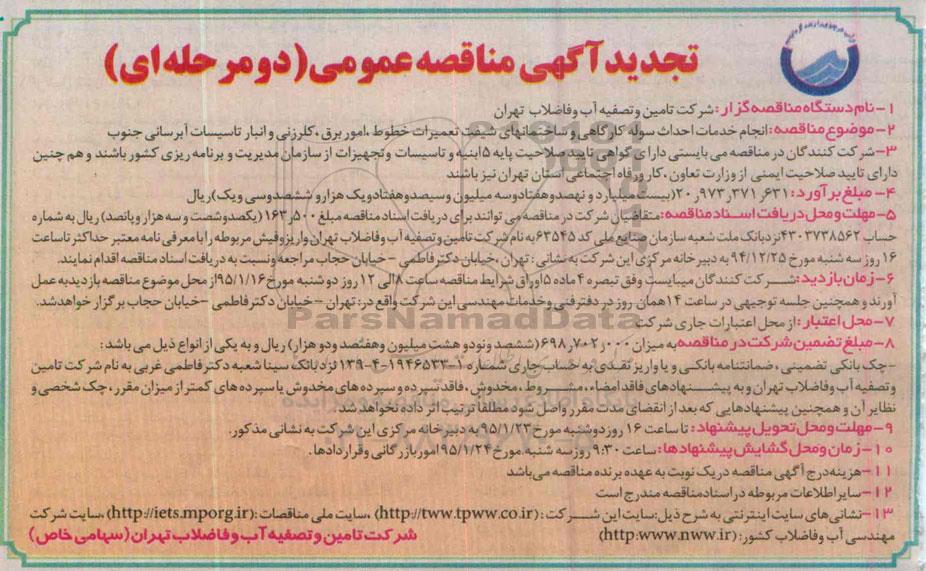 تجدید آگهی مناقصه عمومی (دو مرحله ای)
۱- نام دستگاه مناقصه گزار: شرکت تامین و تصفیه آب و فاضلاب تهران
۲- موضوع مناقصه: انجام خدمات احداث سوله کارگاهی و ساختمانهای شیفت تعمیرات خطوط، امور برق، کلرزنی و انبار تاسیسات آبرسانی جنوب
۳- شرکت کنندگان در مناقصه می بایستی دارای گواهی تایید صلاحیت پایه ۵ ابنیه و تاسیسات و تجهیزات از سازمان مدیریت و برنامه ریزی کشور باشند و هم چنین
دارای تایید صلاحیت ایمنی از وزارت تعاون، کار و رفاه اجتماعی استان تهران نیز باشند
۴- مبلغ برآورد: ۲۰٫۹۷۳٫۳۷۱٫۶۳۱ (بیست میلیارد و نهصد و هفتاد و سه میلیون و سیصد و هفتاد و یک هزار و ششصد و سی و یک) ریال
۵- مهلت و محل دریافت اسناد مناقصه: متقاضیان شرکت در مناقصه می توانند برای دریافت اسناد مناقصه مبلغ ۱۶۳٫۵۰۰ (یکصد و شصت و سه هزار و پانصد) ریال به شماره
حساب ۴۳۰۳۷۳۸۵۶۲ نزد بانک ملت شعبه سازمان صنایع ملی کد ۶۳۵۴۵ به نام شرکت تامین و تصفیه آب و فاضلاب تهران واریز و فیش مربوطه را با معرفی نامه معتبر حداکثر تا ساعت
۱۶ روز سه شنبه مورخ ۹۴/۱۲/۲۵ به دبیرخانه مرکزی این شرکت به نشانی: تهران، خیابان دکتر فاطمی - خیابان حجاب مراجعه و نسبت به دریافت اسناد مناقصه اقدام نمایند.
۶- زمان بازدید: شرکت کنندگان میبایست وفق تبصره ۴ ماده ۵ اوراق شرایط مناقصه ساعت ۸ الی ۱۲ روز دوشنبه مورخ ۹۵/۱/۱۶ از محل موضوع مناقصه بازدید به عمل
آورند و همچنین جلسه توجیهی در ساعت ۱۴ همان روز در دفتر فنی و خدمات مهندسی این شرکت واقع در: تهران - خیابان دکتر فاطمی - خیابان حجاب برگزار خواهد شد.
۷- محل اعتبار: از محل اعتبارات جاری شرکت
ParsNamadData
۸- مبلغ تضمین شرکت در مناقصه به میزان ۶۹۸٫۷۰۲٫۰۰۰ (ششصد و نود و هشت میلیون و هفتصد و دو هزار) ریال و به یکی از انواع ذیل می باشد:
- چک بانکی تضمینی، ضمانتنامه بانکی و یا واریز نقدی به حساب جاری شماره ۱-۱۹۴۶۵۳۳-۴-۱۳۹ نزد بانک سینا شعبه دکتر فاطمی غربی به نام شرکت تامین
و تصفیه آب و فاضلاب تهران و به پیشنهادهای فاقد امضاء، مشروط، مخدوش، فاقد سپرده و سپرده های مخدوش یا سپرده های کمتر از میزان مقرر، چک شخصی و
نظایر آن و همچنین پیشنهادهایی که بعد از انقضای مدت مقرر واصل شود مطلقا ترتیب اثر داده نخواهد شد.
۹- مهلت و محل تحویل پیشنهاد: تا ساعت ۱۶ روز دوشنبه مورخ ۹۵/۱/۲۳ به دبیرخانه مرکزی این شرکت به نشانی مذکور.
۱۰- زمان و محل گشایش پیشنهادها: ساعت ۹:۳۰ روز سه شنبه مورخ ۹۵/۱/۲۴ امور بازرگانی و قراردادها.
۱۱- هزینه درج آگهی مناقصه در یک نوبت به عهده برنده مناقصه می باشد
۱۲- سایر اطلاعات مربوطه در اسناد مناقصه مندرج است
۱۳- نشانی های سایت اینترنتی به شرح ذیل: سایت این شرکت: (http://tww.tpww.co.ir)، سایت ملی مناقصات: (http://iets.mporg.ir)، سایت شرکت
مهندسی آب و فاضلاب کشور: (http:www.nww.ir)
شرکت تامین و تصفیه آب و فاضلاب تهران (سهامی خاص)